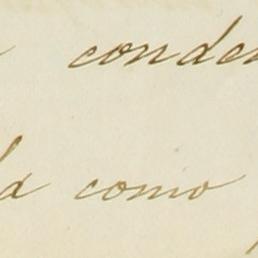 conden
da como